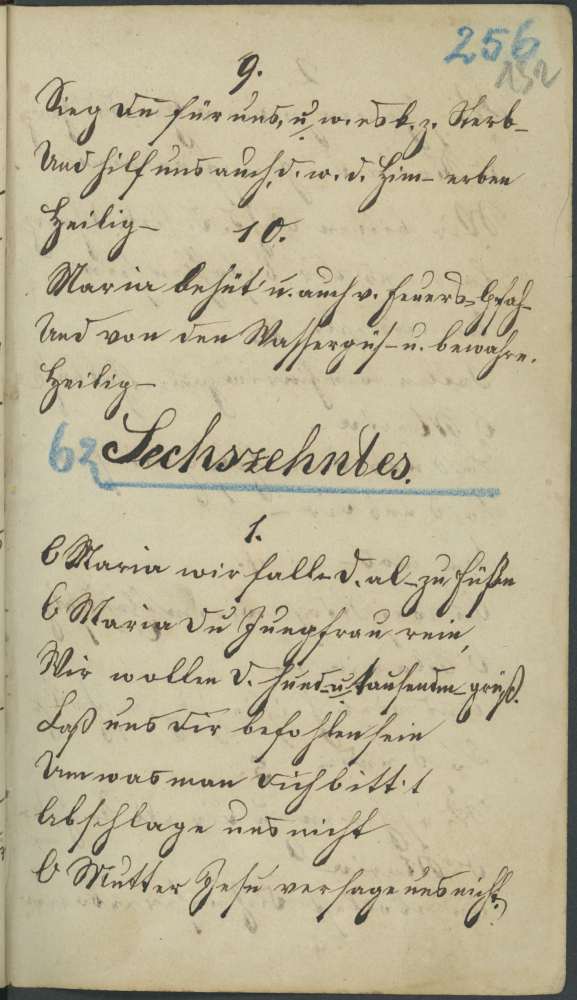 256
152
9.
Sieg du für uns, u. w. es k. z. Sterb-
Und hilf uns auch, d. w. d. Him- erben
Heilig-
10.
Maria behüt' u. auch v. Feuers-Gfah-
Und von den Wassergüs- u. bewahre.
Heilig-
62 Sechszehntes.
1.
O Maria wir fall- d. al- zu Füßen
O Maria du Jungfrau rein,
Wir wollen d. hund- u. tausendm- grüß.
Laß uns dir befohlen sein
Um was man dich bitt't
Abschlage uns nicht
O Mutter Jesu versage uns nicht.